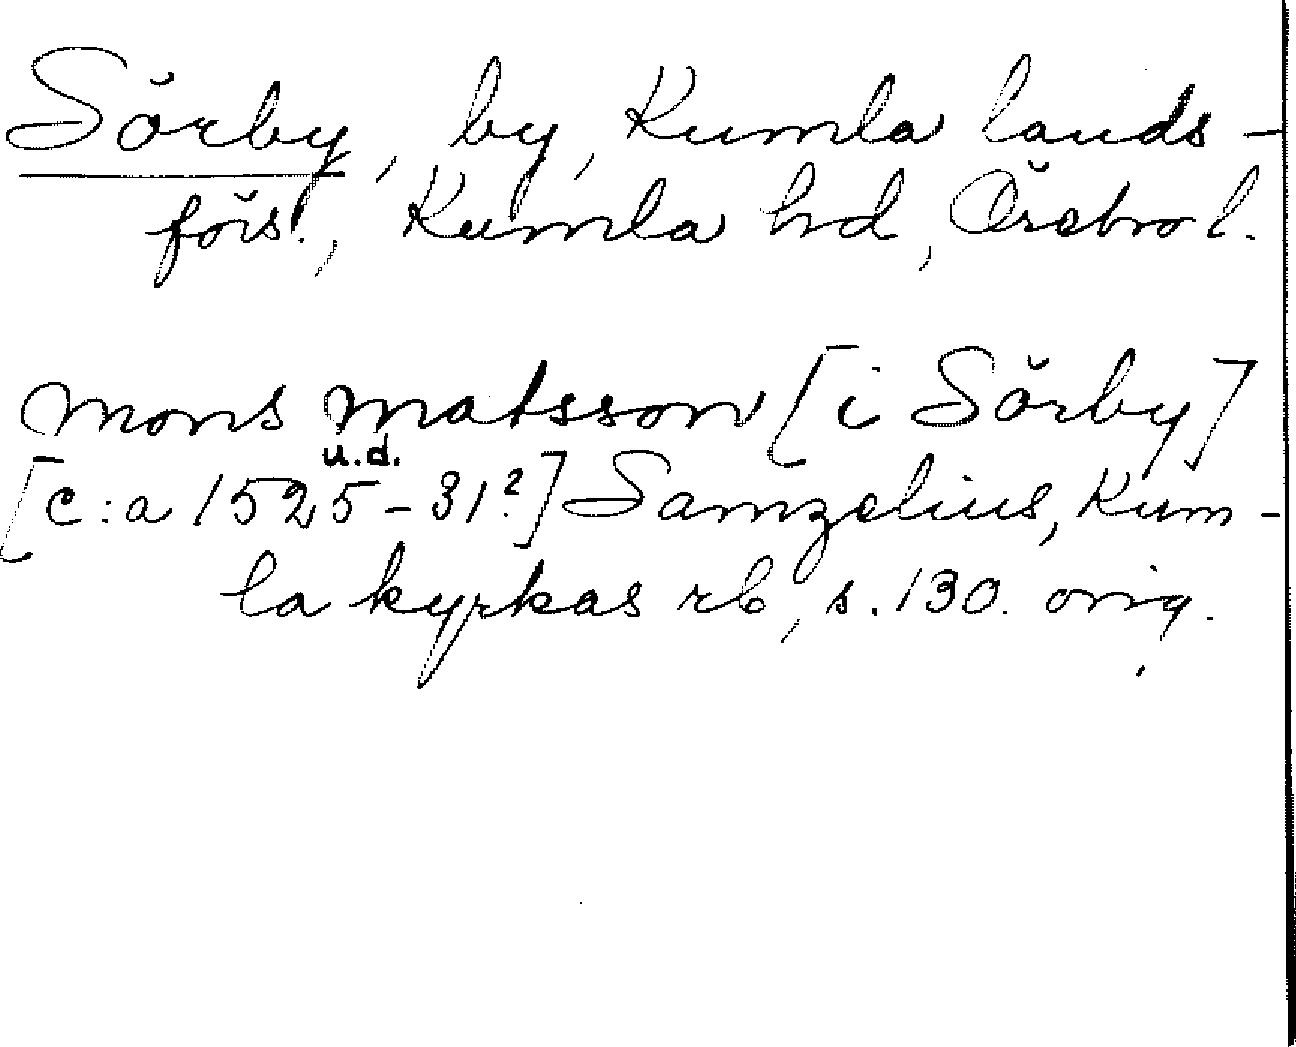 Sörby, by, Kumla lands-
förs., Kumla hd, Örebro l.
Mons Matsson [i Sörby]
u.d.
[c:a 1525-31?] Samzelius, Kum-
la kyrkas rb, s. 130. orig.